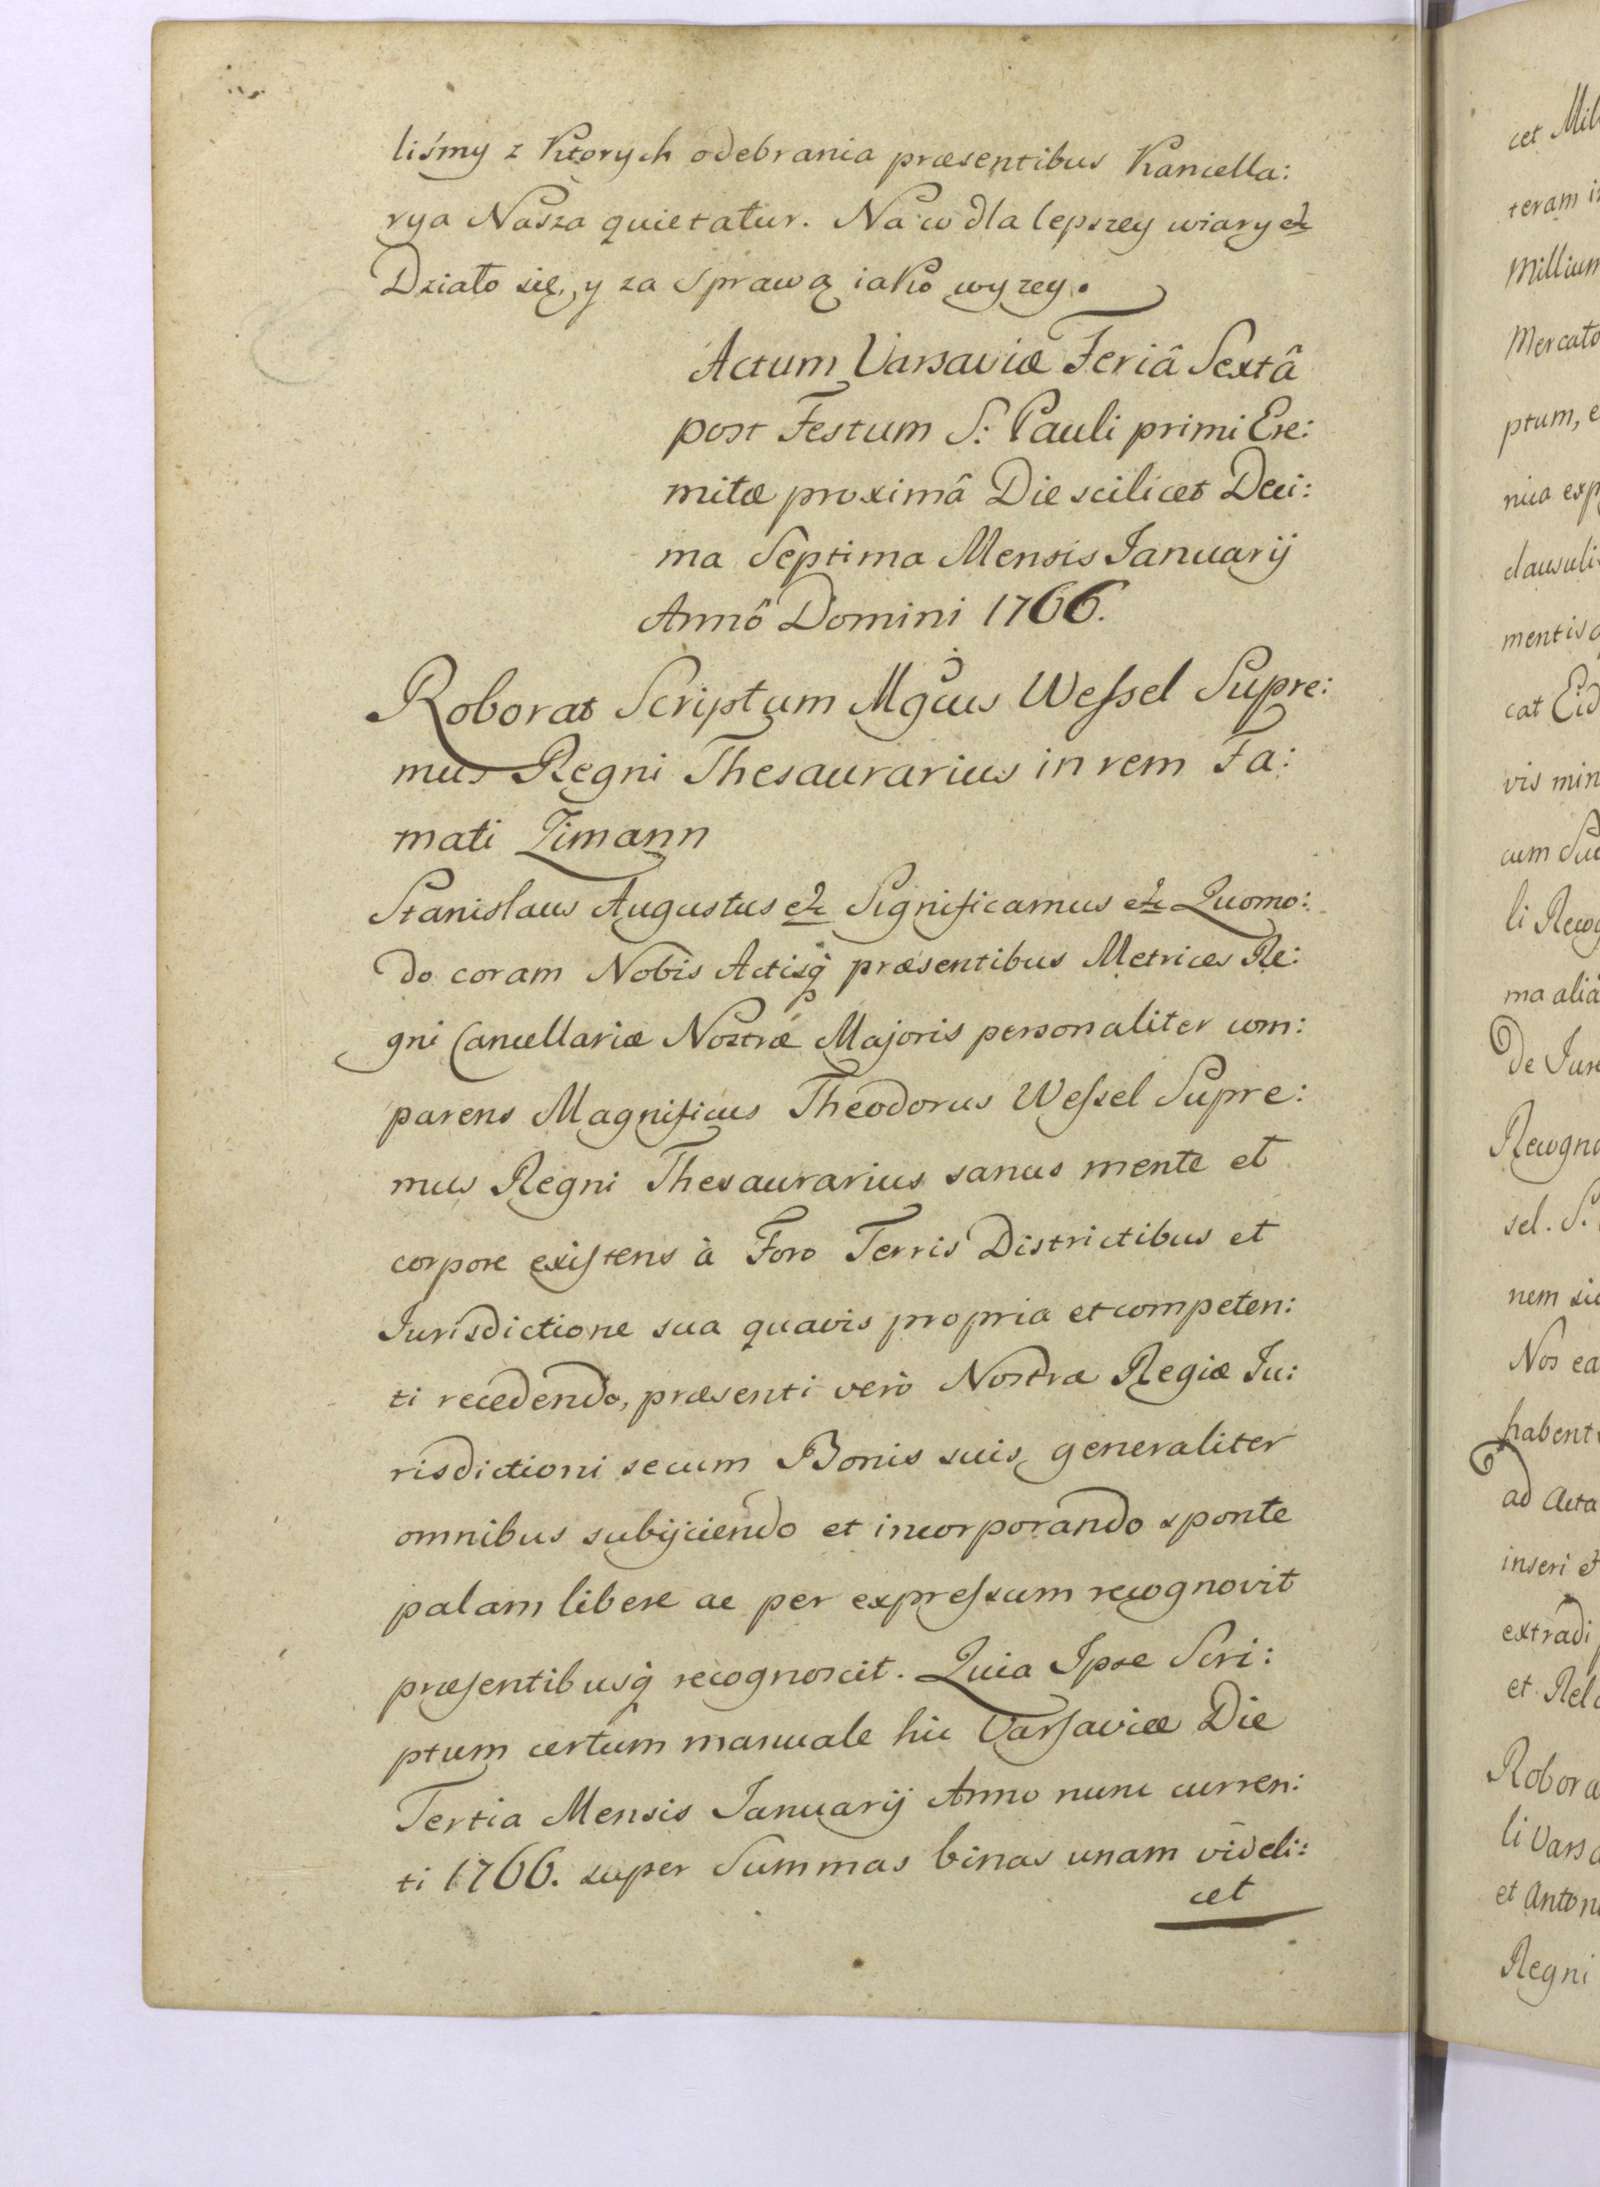 liśmy z Ktorych odebrania præsentibus Kancella:
rya Nasza quietatur. Na co dla lepszey wiary etc
Działo się, y za sprawą iako wyzey.
Actum Varsaviæ Feriâ Sextâ
post Festum S: Pauli primi Ere:
mitæ proximâ Die scilicet Deci:
ma Septima Mensis Ianuarij
Annô Domini 1766.
Roborat Scriptum Mgcus Wessel Supre:
mus Regni Thesaurarius in rem Fa:
mati Zimann
Stanislaus Augustus etc Significamus etc Quomo:
do coram Nobis Actisq́ præsentibus Metrices Re:
gni Cancellariæ Nostræ Majoris personaliter com:
parens Magnificus Theodorus Wessel Supre:
mus Regni Thesaurarius sanus mente et
corpore existens à Foro Terris Districtibus et
Iurisdictione sua quavis propria et competen:
ti recedendo, præsenti verò Nostræ Regiæ Iu:
risdictioni secum Bonis suis generaliter
omnibus subijciendo et incorporando sponte
palam libere ac per expressum recognovit
præsentibusq́ recognoscit. Quia Ipse Scri:
ptum certum manuale hic Varsaviæ Die
Tertia Mensis Ianuarij Anno nunc curren:
ti 1766. super Summas binas unam videli:
cet
cet
teram
Millium
Mercato
ptum, e
nica exp
clausulis
mentis
cat Eid
vis min
cum
li Recog
ma aliâ
De Iure
Recogno
sel. S.
nem sic
Nos ea
habent
ad Acta
inseri et
extradi
et Rel
Robora
li Vars
et Anton
Regni